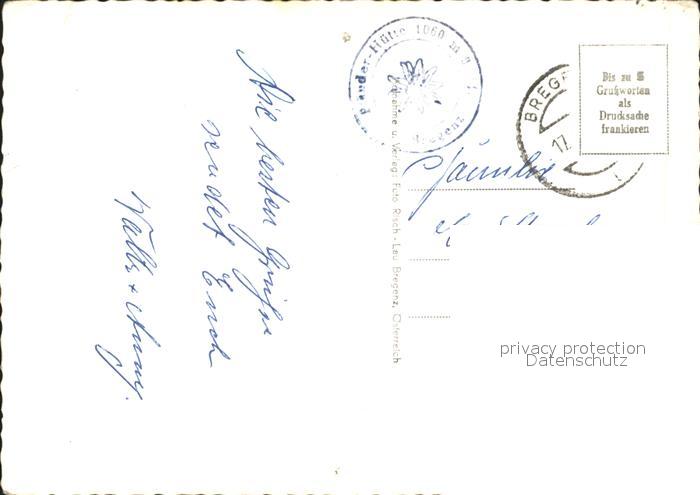 Die besten Grüße
sendet Euch
Walter + Anny.
Pfänder-Hütte 1060 m
Bregenz
Aufnahme u. Verlag: Foto Risch-Lau Bregenz, Österreich
BREG
17.
Bis zu 5
Grußworten
als
Drucksache
frankieren
Familie
privacy protection
Datenschutz